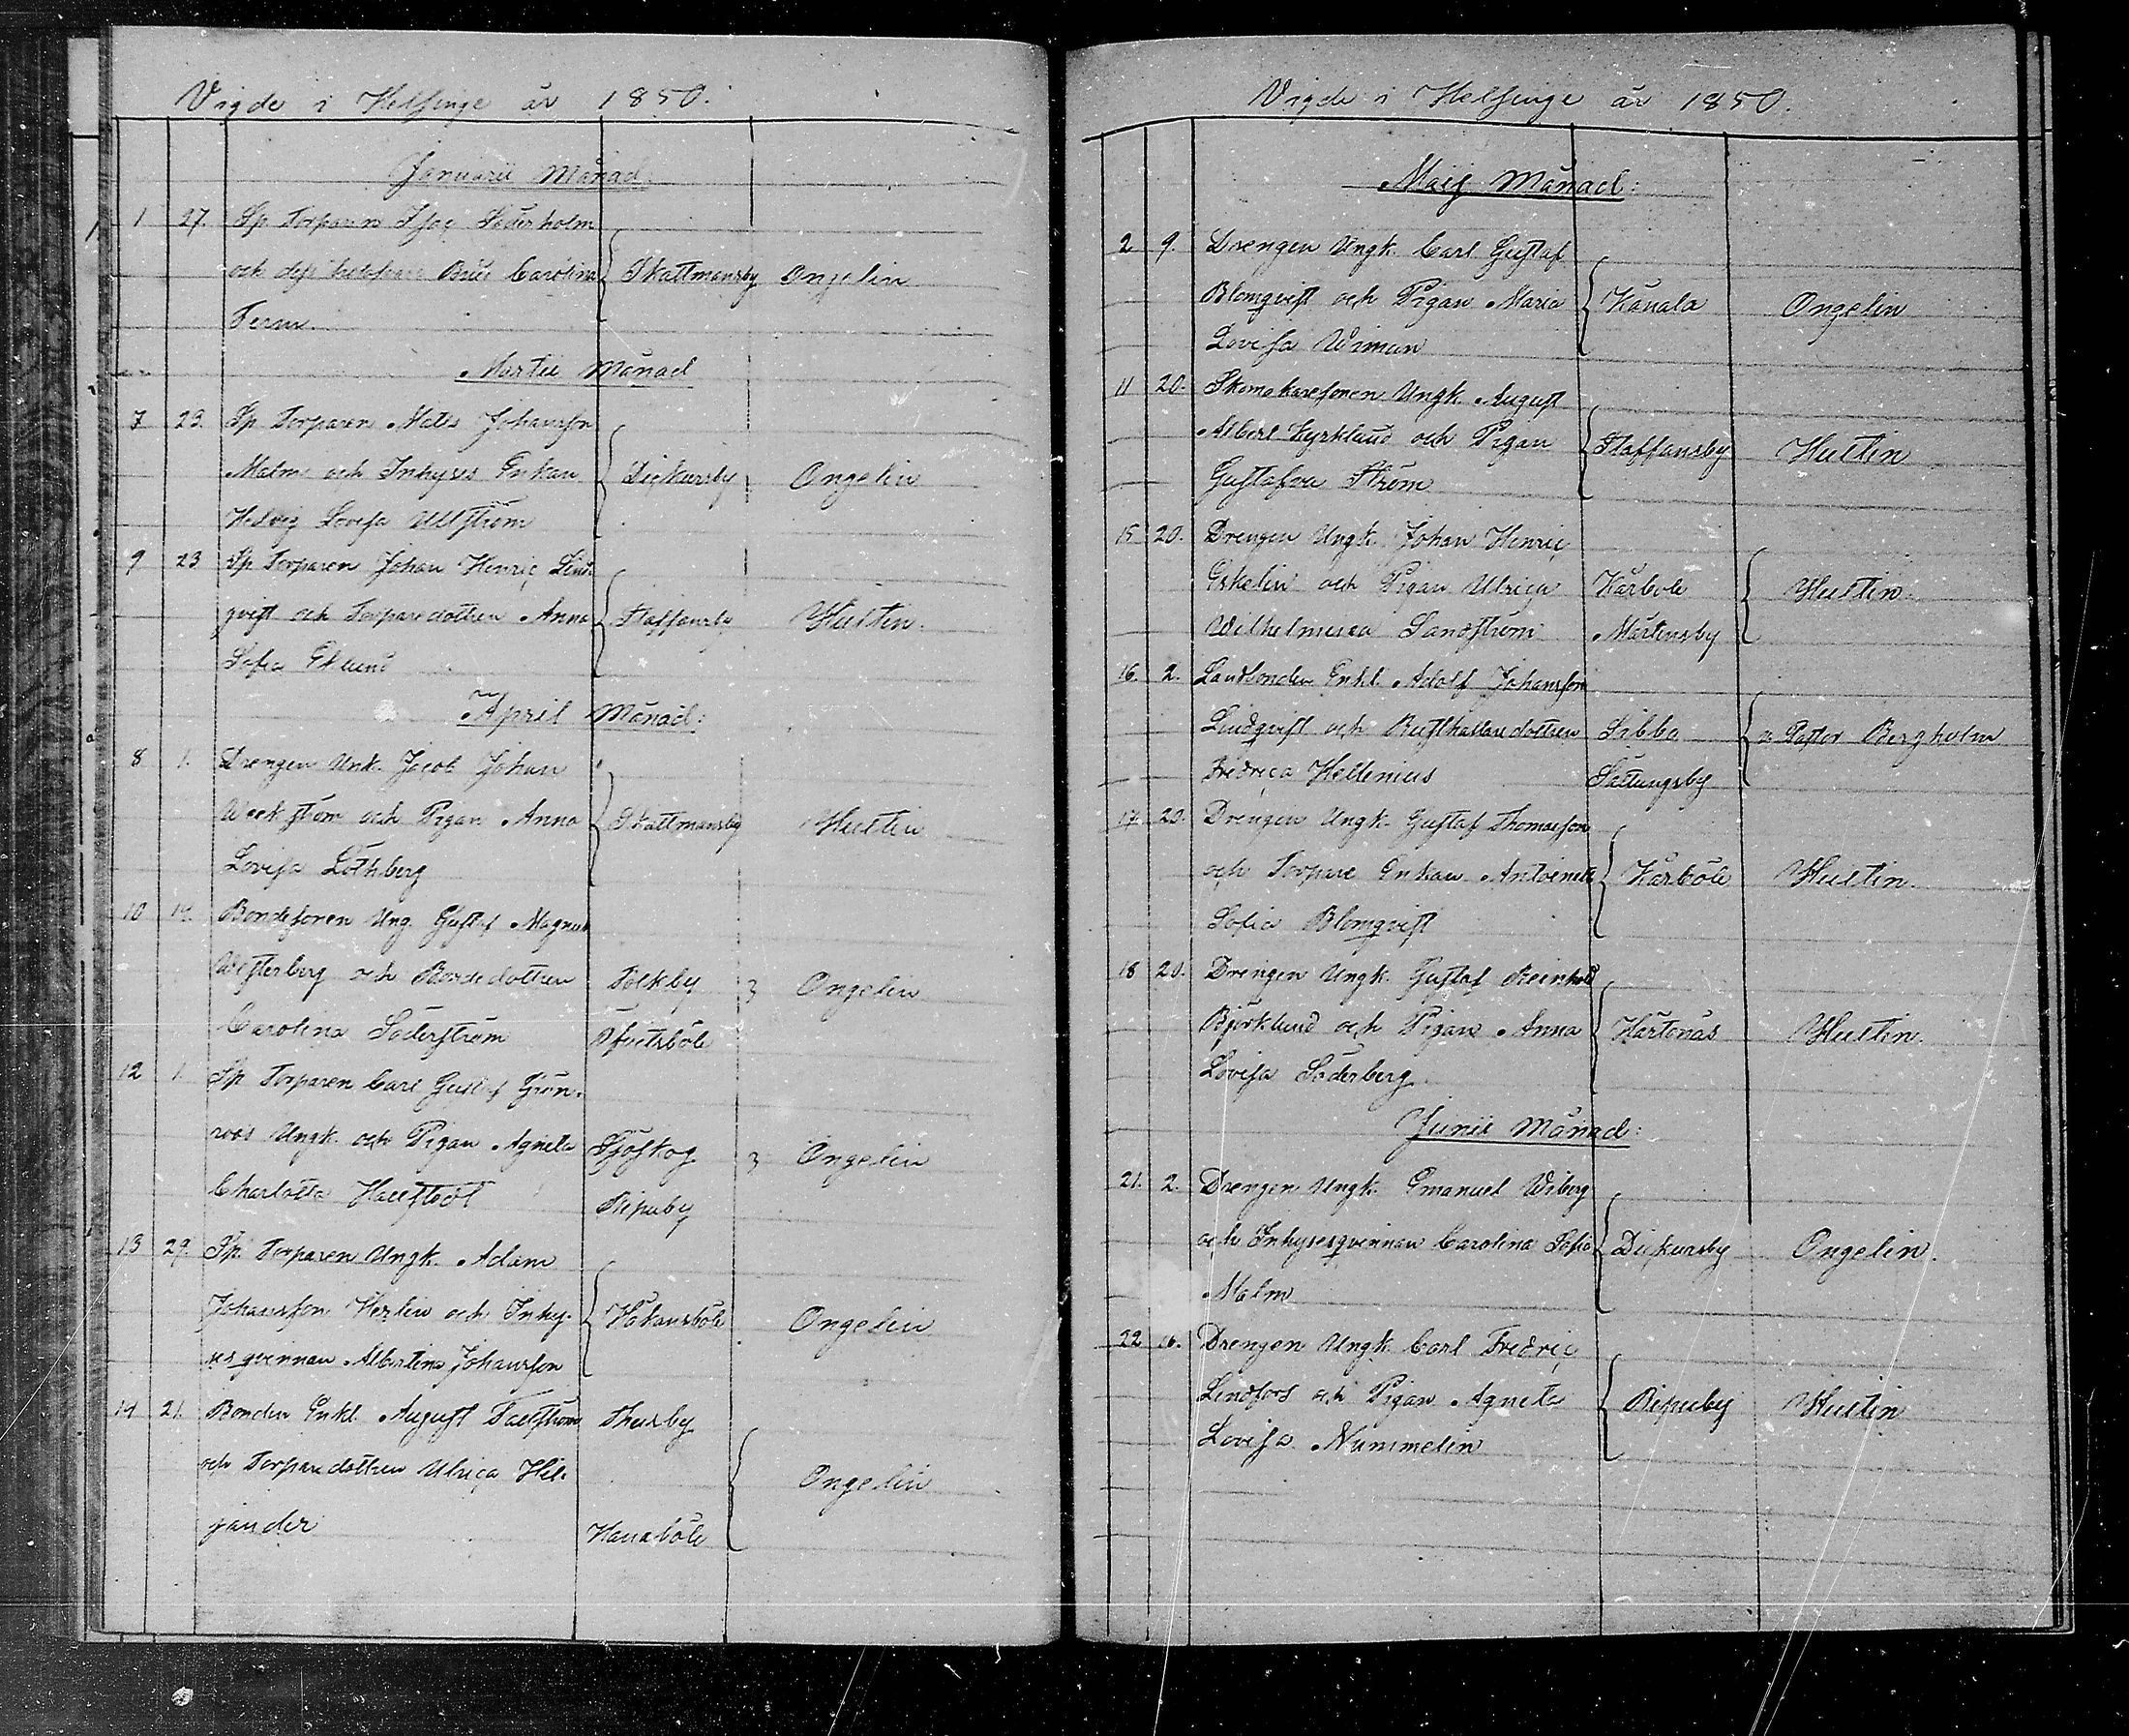 Vigde i Helsinge år 1850.
Januarii Månad
1 27. Sp Torparen Isac Söderholm
och dess Carolina Skattmansby Ongelin
Ferm
Martii Månad
7 23. Sp Torparen Mats Johansson
Malm och Inhyses Enkan Dickursby Ongelin
Hedvig Lovisa Ullström
9 23 Sp Torparen Johan Henric Lind-
qvist och Torparedottren Anna Staffansby Hultin.
Sofia Eklund
April Månad:
8 1. Drengen Unk. Jacob Johan
Weckström och Pigan Anna Skattmansby Hultin
Lovisa Löthberg
10 14. Bondesonen Ung. Gustaf Magnus
Westerberg och Bondedottren Tolkby Ongelin
Carolina Söderström
12 1. Sp Torparen Carl Gustaf Grön-
roos Ungk. och Pigan Agneta Sjöskog Ongelin
Charlotta Hallstedt Ripuby
13 29. Sp. Torparen Ungk. Adam
Johansson Herlin och Inhy- Håkansböle Ongelin
ses qvinnan Albertina Johansson
14 21. Bonden Enkl. August Fallström Thusby
och Torparedottren Ulrica Hel- Ongelin
jander Hanaböle
Vigde i Helsinge år 1850.
Maij Månad:
2 9. Drengen Ungk. Carl Gustaf
Blomqvist och Pigan Maria Kånala Ongelin
Lovisa Wiman
11 20. Skomakaresonen Ungk. August
Albert Kyrklund och Pigan Staffansby Hultin
Gustafva Ström
15 20. Drengen Ungk. Johan Henric
Eskelin och Pigan Ulrica Kårböle Hultin.
Wilhelmina Sandström Mårtensby
16. 2. Landbonden Enkl. Adolf Johansson
Lindqvist och Rusthållaredottren Sibbo v. Pastor Bergholm
Fredrica Hellenius Sattungsby
17. 20. Drengen Ungk. Gustaf Thomasson
och Torpare Enkan Antoinette Kårböle Hultin.
Sofia Blomqvist
18 20. Drengen Ungk. Gustaf Reinhold
Björklund och Pigan Anna Hertonäs Hultin.
Lovisa Söderberg
Junii Månad:
21. 2. Drengen Ungk. Emanuel Wiberg
och Inhysesqvinnan Carolina Sofia Dickursby Ongelin.
Malm
22 16. Drengen Ungk. Carl Fredric
Lindfors och Pigan Agneta Ripuby Hultin
Lovisa Nummelin